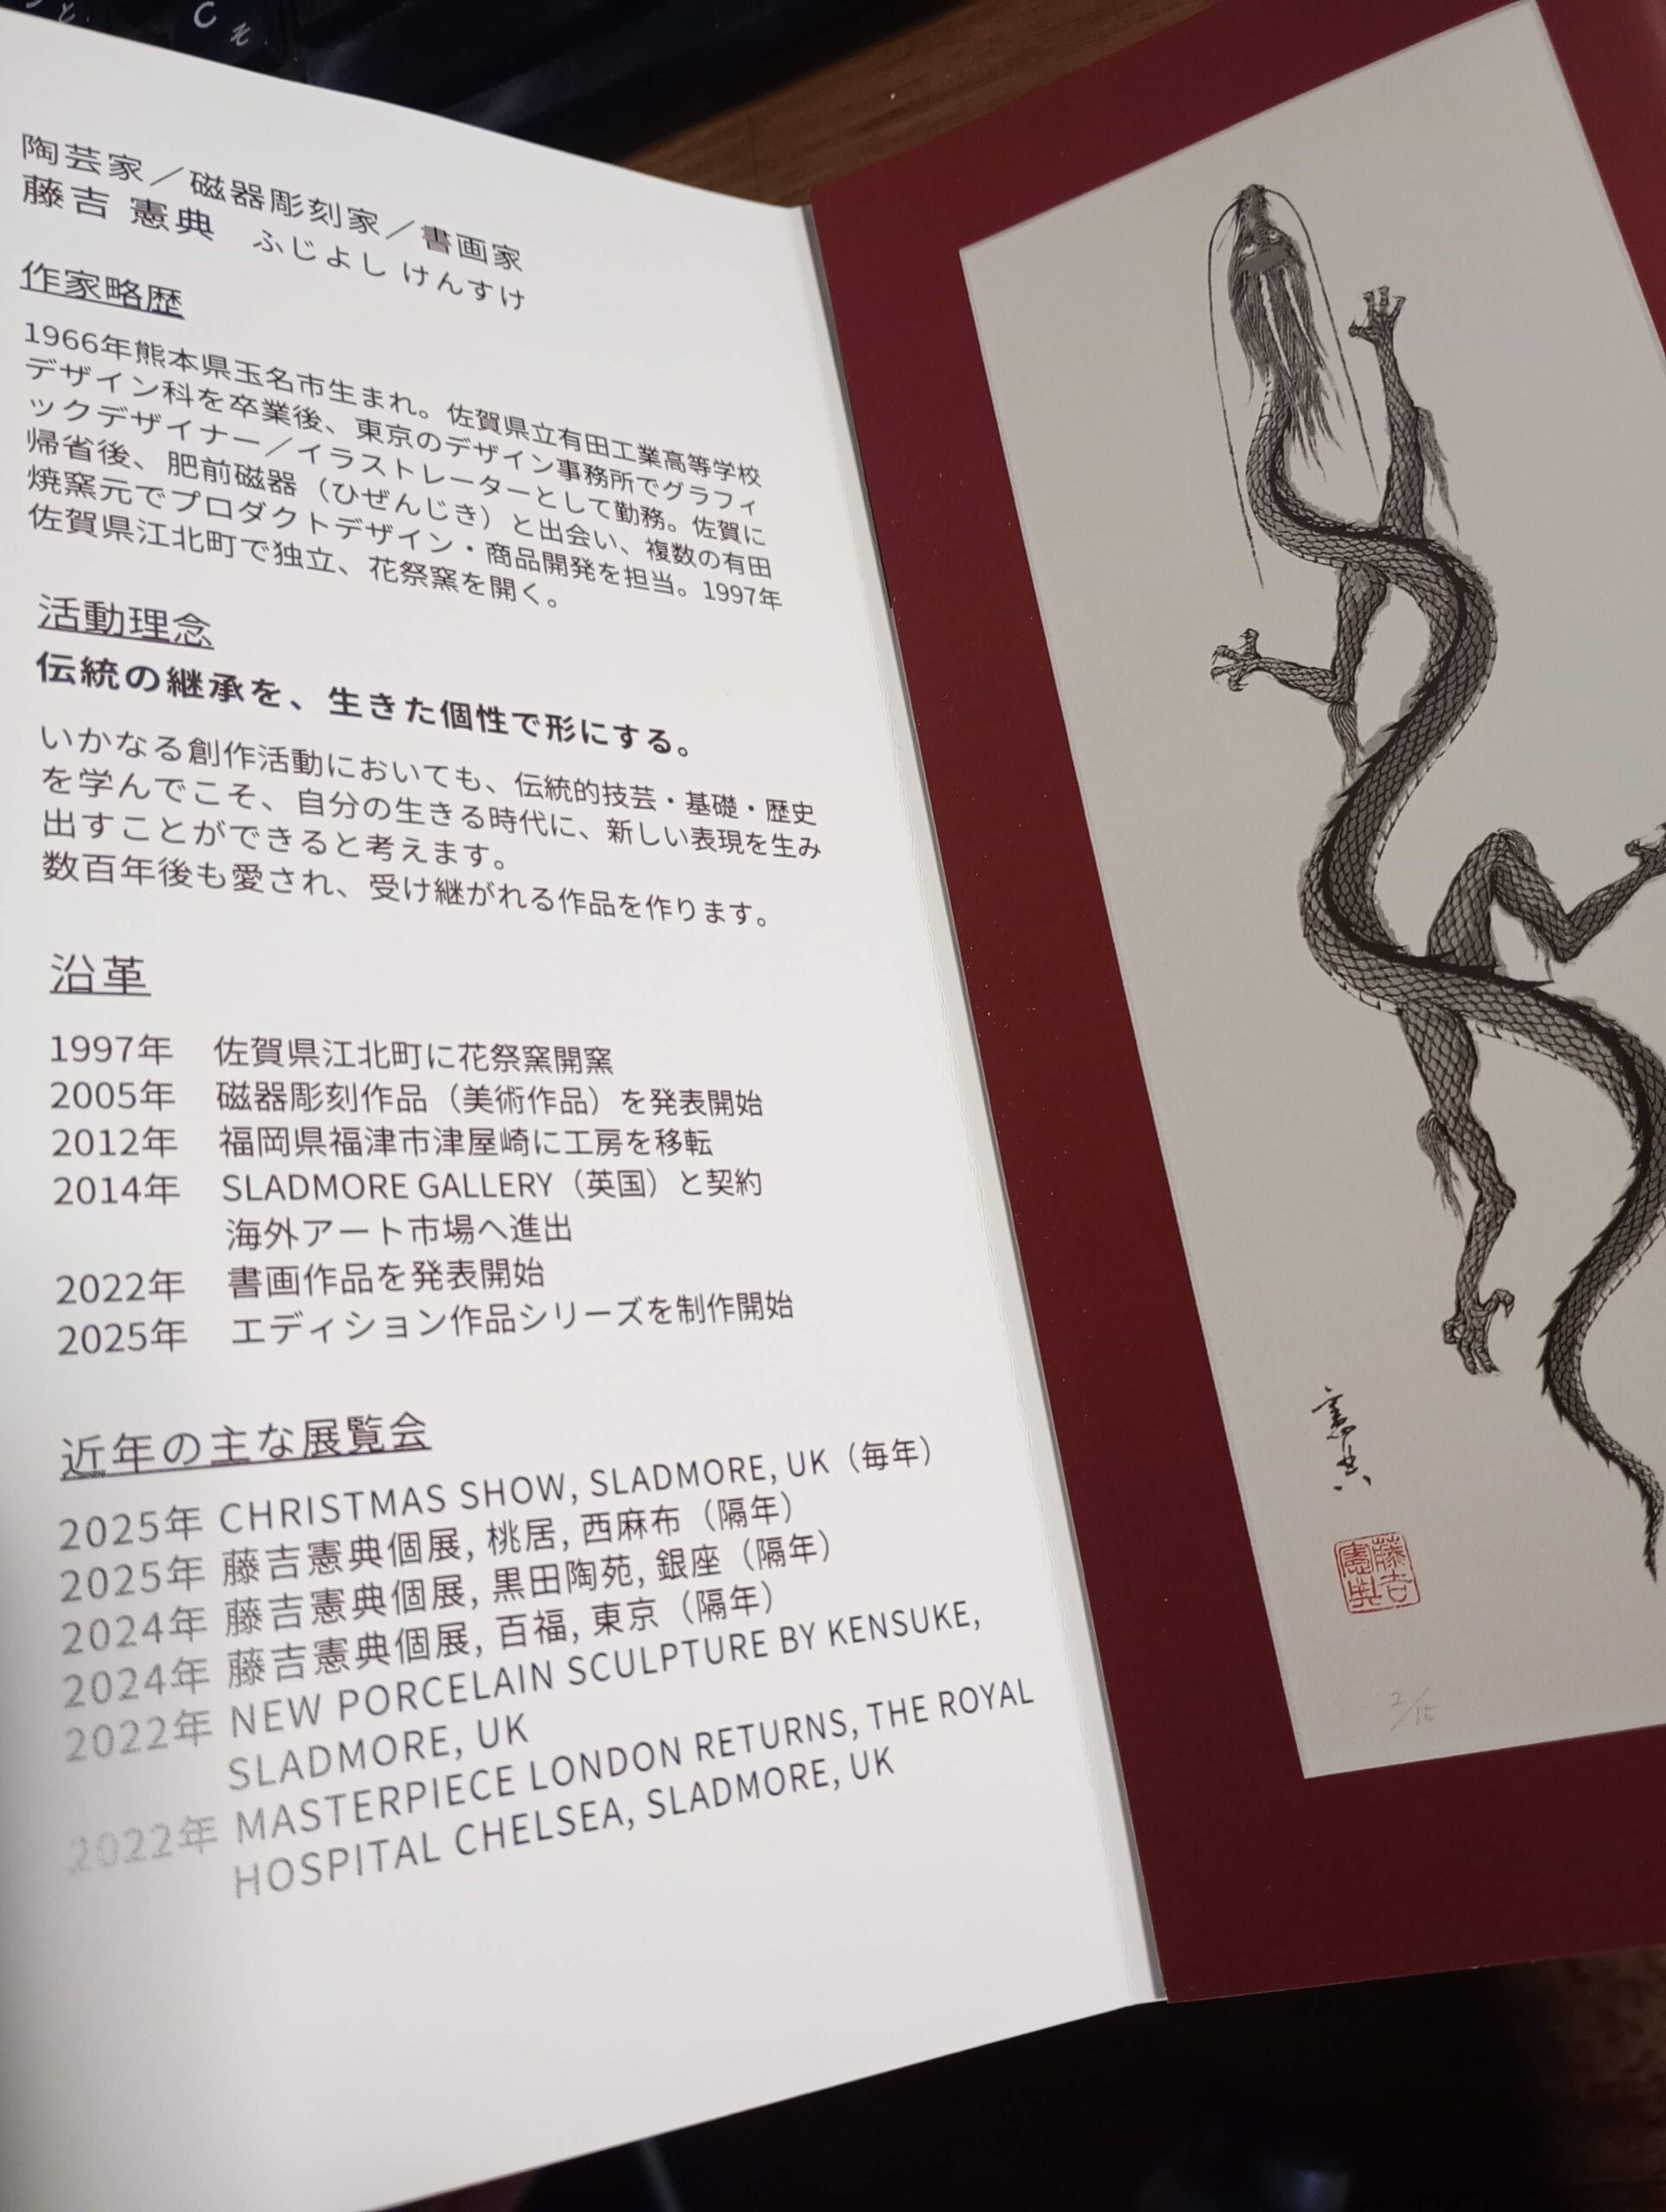 陶芸家／磁器彫刻家／書画家
藤吉 憲典 ふじよし けんすけ
作家略歴
1966年熊本県玉名市生まれ。佐賀県立有田工業高等学校
デザイン科を卒業後、東京のデザイン事務所でグラフィ
ックデザイナー／イラストレーターとして勤務。佐賀に
帰省後、肥前磁器（ひぜんじき）と出会い、複数の有田
焼窯元でプロダクトデザイン・商品開発を担当。1997年
佐賀県江北町で独立、花祭窯を開く。
活動理念
伝統の継承を、生きた個性で形にする。
いかなる創作活動においても、伝統的技芸・基礎・歴史
を学んでこそ、自分の生きる時代に、新しい表現を生み
出すことができると考えます。
数百年後も愛され、受け継がれる作品を作ります。
沿革
1997年 佐賀県江北町に花祭窯開窯
2005年 磁器彫刻作品（美術作品）を発表開始
2012年 福岡県福津市津屋崎に工房を移転
2014年 SLADMORE GALLERY（英国）と契約
海外アート市場へ進出
2022年 書画作品を発表開始
2025年 エディション作品シリーズを制作開始
近年の主な展覧会
2025年 CHRISTMAS SHOW, SLADMORE, UK（毎年）
2025年 藤吉憲典個展, 桃居, 西麻布（隔年）
2024年 藤吉憲典個展, 黒田陶苑, 銀座（隔年）
2024年 藤吉憲典個展, 百福, 東京（隔年）
2022年 NEW PORCELAIN SCULPTURE BY KENSUKE,
SLADMORE, UK
2022年 MASTERPIECE LONDON RETURNS, THE ROYAL
HOSPITAL CHELSEA, SLADMORE, UK
憲典
藤吉
憲典
2/15